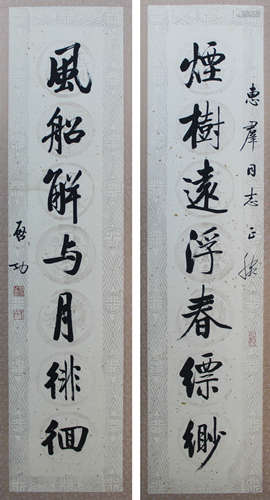 惠羣同志正腕
煙樹遠浮春縹緲
風船解与月徘徊
启功